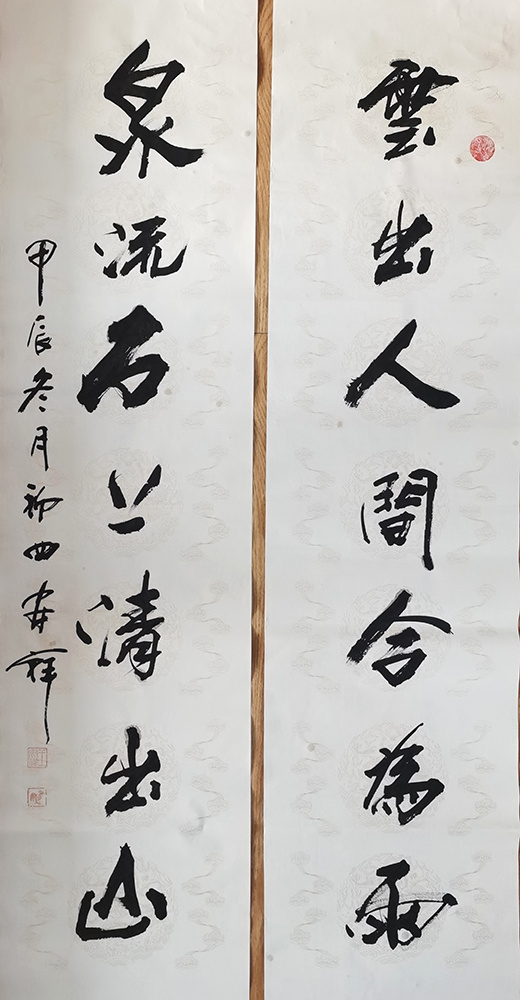 雲出人間合為雨
泉流石上清出山
甲辰冬月初四安祥